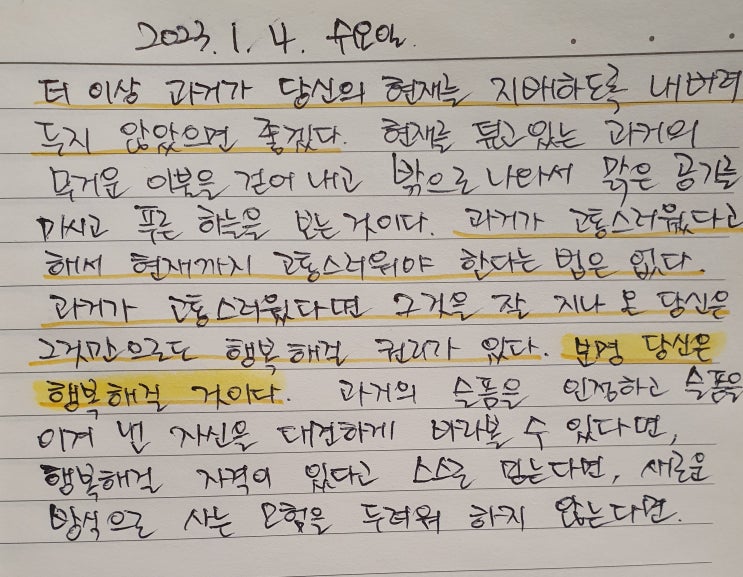 2023. 1. 4. 수요일.
더 이상 과거가 당신의 현재를 지배하도록 내버려
두지 않았으면 좋겠다. 현재를 덮고있는 과거의
무거운 이불을 걷어 내고 밖으로 나와서 맑은 공기를
마시고 푸른 하늘을 보는 것이다. 과거가 고통스러웠다고
해서 현재까지 고통스러워야 한다는 법은 없다.
과거가 고통스러웠다면 그것을 잘 지나 온 당신은
그것만으로도 행복해질 권리가 있다. 분명 당신은
행복해질 것이다. 과거의 슬픔을 인정하고 슬픔을
이겨 낸 자신을 대견하게 바라볼 수 있다면,
행복해질 자격이 있다고 스스로 믿는다면, 새로운
방식으로 사는 모험을 두려워 하지 않는다면.